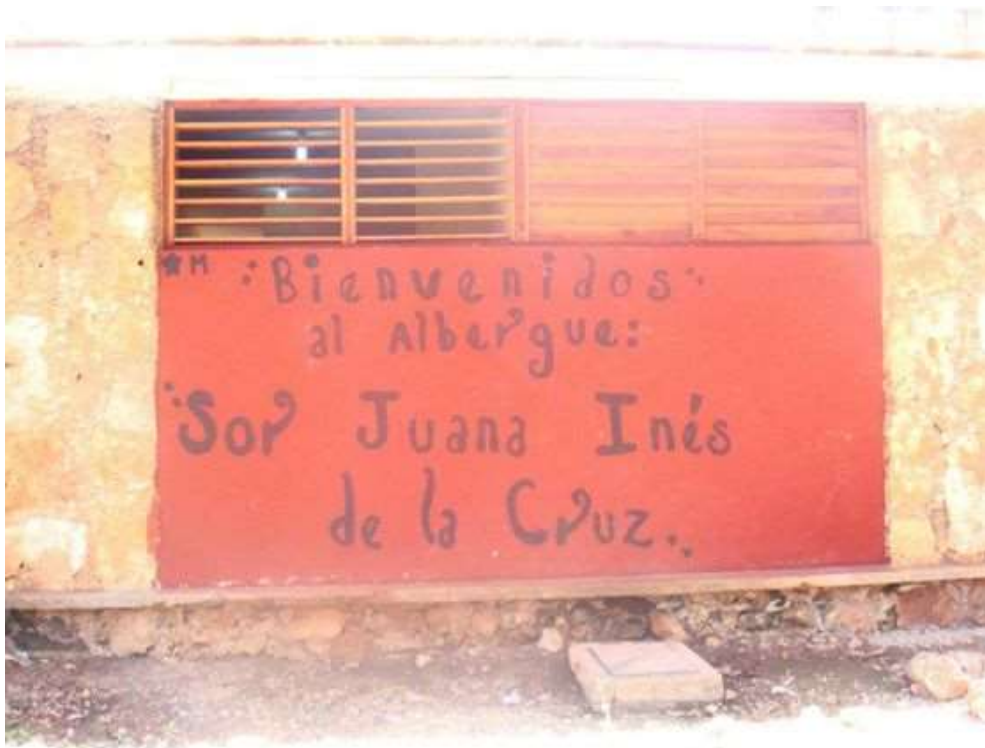 ★M ∴Bienvenidos∵
al Albergue:
∴Sor Juana Inés
de la Cruz∴